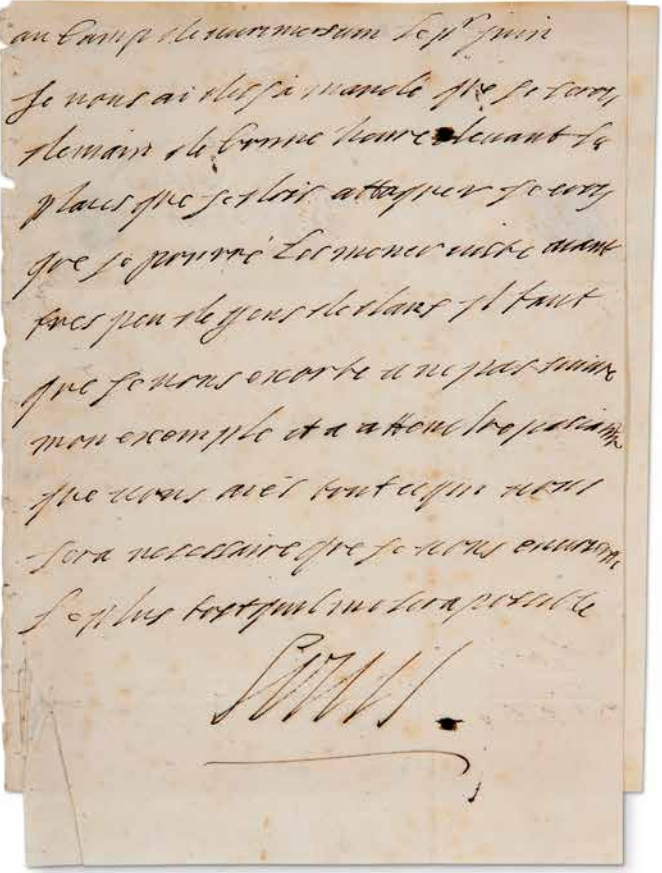 au Camp de le p^r juin
Je vous ai desja mandé que je seroy
demain de bonne heure devant la
place que je dois attaquer je croy
que je pourré les mener viste aiant
tres peu de gens dedans il faut
que je vous exorte a ne pas suivre
mon exemple et a attendre
que vous aiés tout ce qui vous
sera necessaire que je vous
le plus tost quil me sera possible
Louis.